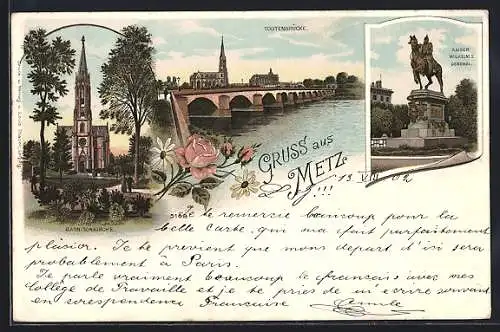 TODTENBRÜCKE.
KAISER
WILHELM I
DENKMAL.
GARNISONKIRCHE.
GRUSS aus
METZ
!!!
13 VIII 02
Je te remersie beaucoup pour la
belle carte, qui ma fait parfaitement
plaisior. Je te previent que mons depart d'ici sera
probablement à Paris.
Je parle vraiment beaucoup le francais avec mes
Collège de Travaille et je te pries de m'ecrire souvant
en corespondence Francaise